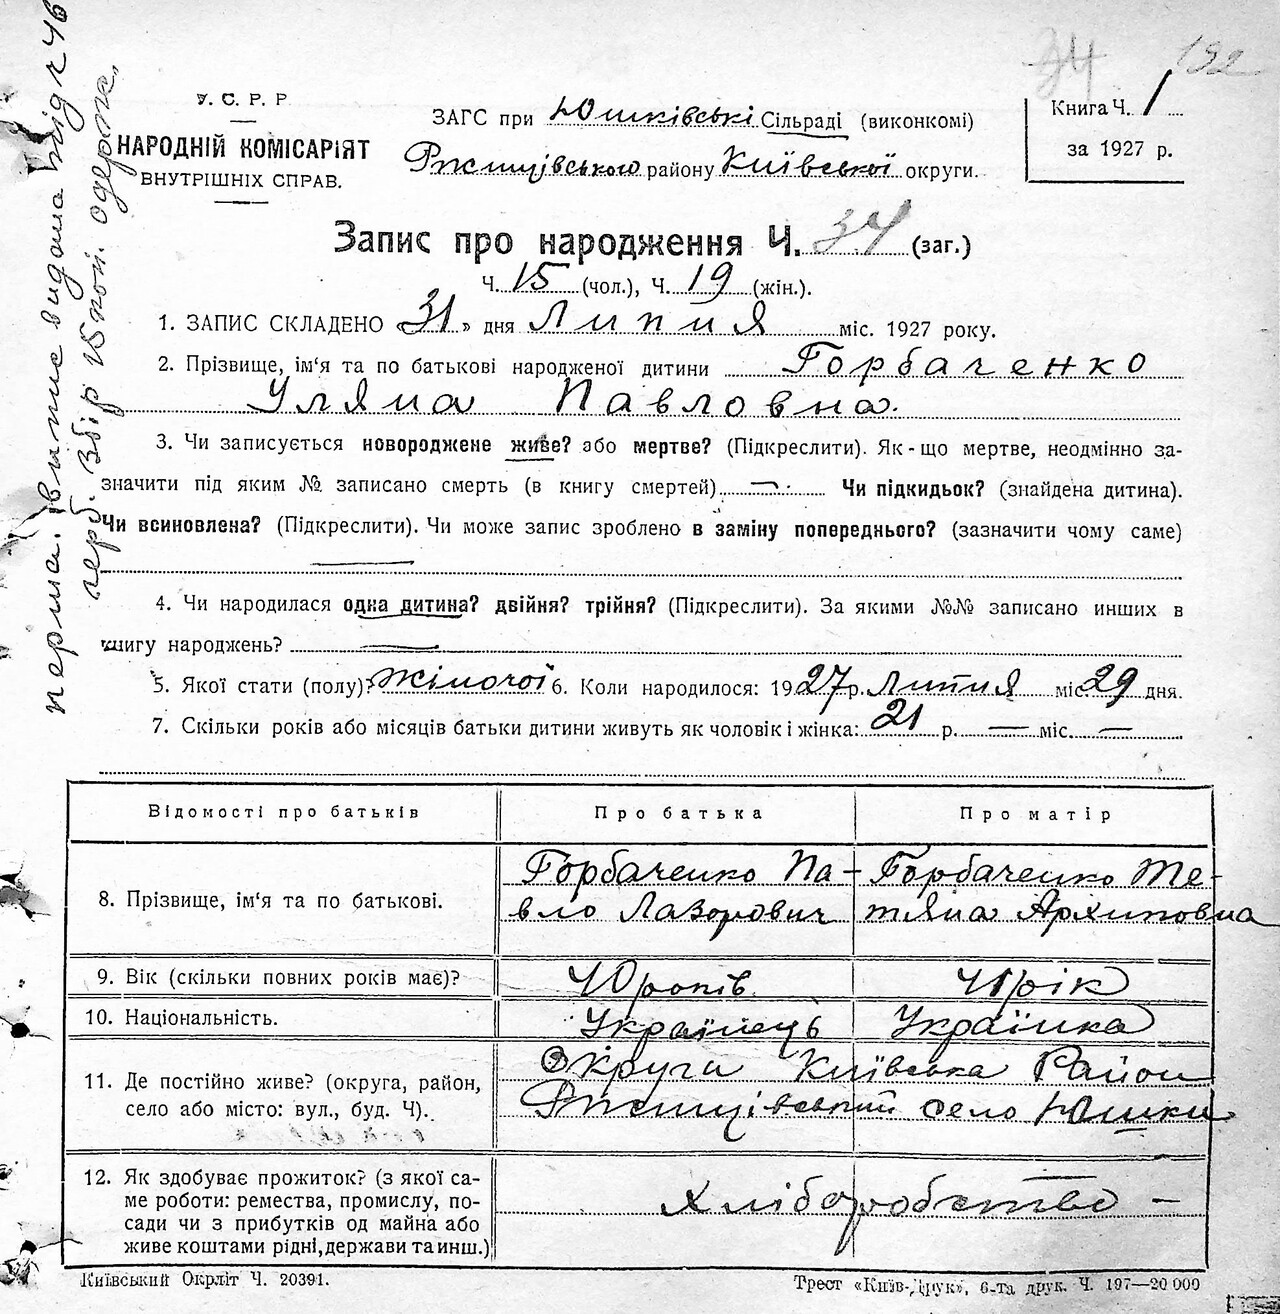 34 192
У. С. Р. Р
НАРОДНІЙ КОМІСАРІЯТ
ВНУТРІШНІХ СПРАВ.
ЗАГС при Юшківські Сільраді (виконкомі)
Ржищівського району Київської округи.
Книга Ч. 1
за 1927 р.
Запис про народження Ч. 34 (заг.)
Ч. 15 (чол.), Ч. 19 (жін.).
1. ЗАПИС СКЛАДЕНО «31» дня Липня міс. 1927 року.
2. Прізвище, ім'я та по батькові народженої дитини Горбаченко
Уляна Павловна.
3. Чи записується новороджене живе? або мертве? (Підкреслити). Як-що мертве, неодмінно за-
значити під яким № записано смерть (в книгу смертей) — Чи підкидьок? (знайдена дитина).
Чи всиновлена? (Підкреслити). Чи може запис зроблено в заміну попереднього? (зазначити чому саме)
—
4. Чи народилася одна дитина? двійня? трійня? (Підкреслити). За якими №№ записано инших в
книгу народжень? —
5. Якої стати (полу)? Жіночої 6. Коли народилося: 1927 р. Липня міс 29 дня.
7. Скільки років або місяців батьки дитини живуть як чоловік і жінка: 21 р. — міс. —
Відомості про батьків Про батька Про матір
8. Прізвище, ім'я та по батькові.
Горбаченко Па-
вло Лазорович
Горбаченко Те-
тяна Архиповна
9. Вік (скільки повних років має)? 40 років. 41 рік
10. Національність. Українець Українка
11. Де постійно живе? (округа, район,
село або місто: вул., буд. Ч).
Округа Київська Район
Ржищівський село Юшки
12. Як здобуває прожиток? (з якої са-
ме роботи: ремества, промислу, по-
сади чи з прибутків од майна або
живе коштами рідні, держави та инш.)
Хліборобство —
Київський Окрліт Ч. 20391.
Трест «Київ-Друк», 6-та друк. Ч. 197—20 000
витис видана під ч 46
герб. збір 15 коп. одержа.